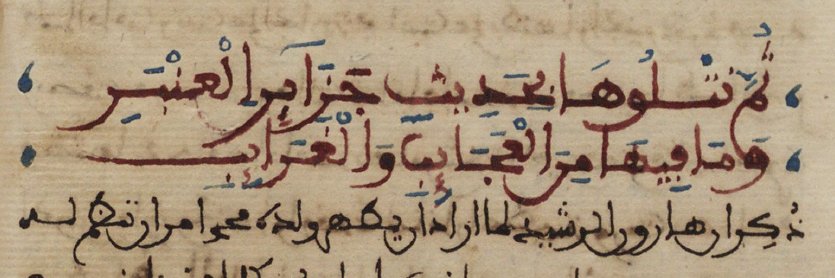 ثُمَّ نَتْلُوهَا بِحَدِيثِ جَزَايِرِ الْعَنْبَرِ
وَمَا فِيهَا مِنَ الْعَجَايِبِ وَالْغَرَايِبِ
ذُكِر ان هارون الرشيد لما اراد ان يطهر ولده محمد امر ان له